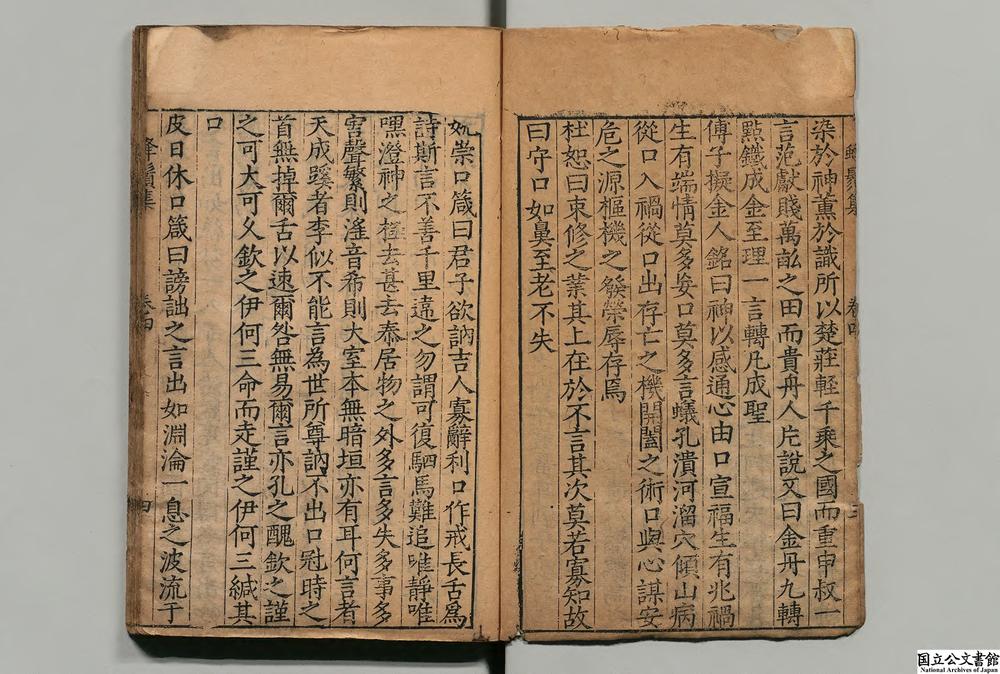 染於神薰於識所以楚莊輕千乘之國而重申叔一
言范獻賤萬畝之田而貴舟人片說又曰金丹九轉
點鐵成金至理一言轉凡成聖
傅子擬金人銘曰神以感通心由口宣福生有兆禍
生有端情莫多妄口莫多言蟻孔潰河溜穴傾山病
從口入禍從口出存亡之機開闔之術口與心謀安
危之源樞機之發榮辱存焉
杜恕曰束修之業其上在於不言其次莫若寡知故
曰守口如鼻至老不失
姚崇口箴曰君子欲訥吉人寡辭利口作戒長舌爲
詩斯言不善千里違之勿謂可復駟馬難追唯靜唯
嘿澄神之極去甚去泰居物之外多言多失多事多
害聲繁則滛音希則大室本無暗垣亦有耳何言者
天成蹊者李似不能言為世所尊訥不出口冠時之
首無掉爾舌以速爾咎無易爾言亦孔之醜欽之謹
之可大可久欽之伊何三命而走謹之伊何三緘其
口
皮日休口箴曰謗詘之言出如淵淪一息之波流于
卷四
四
国立公文書館
National Archives of Japan